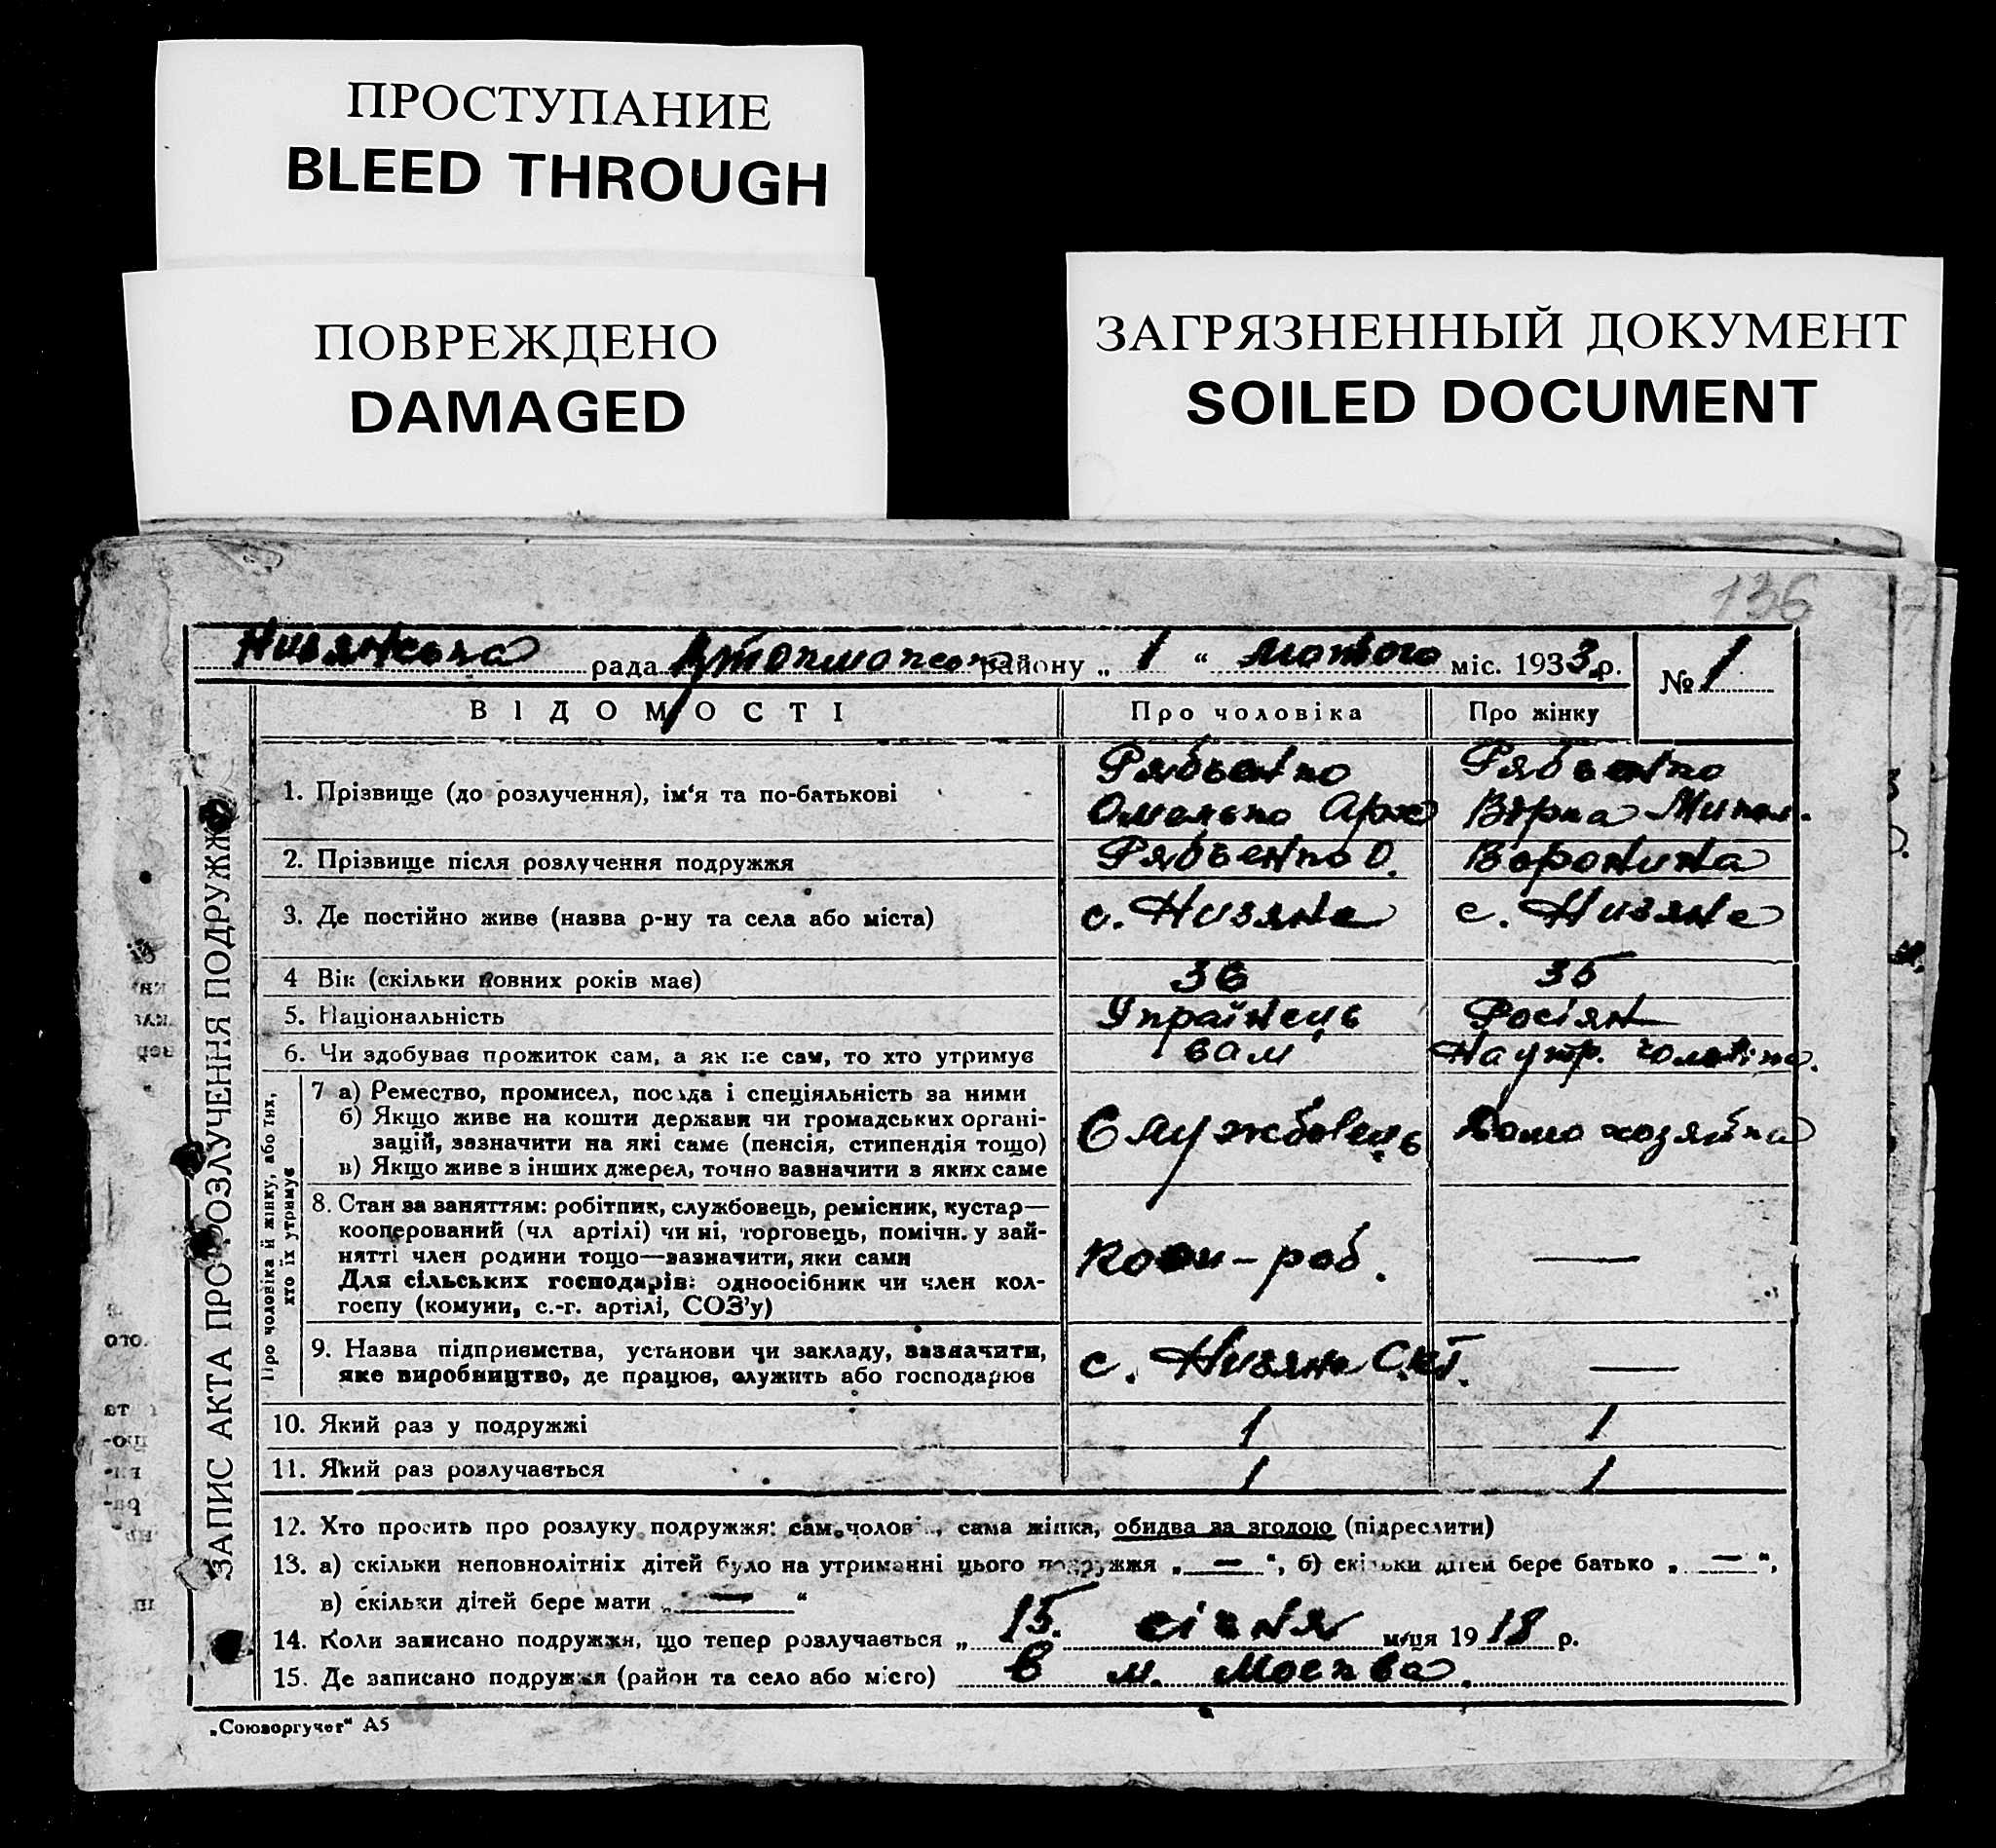 ПРОСТУПАНИЕ
BLEED THROUGH
ПОВРЕЖДЕНО
DAMAGED
ЗАГРЯЗНЕННЫЙ ДОКУМЕНТ
SOILED DOCUMENT
136
Низянська рада району „ 1 “ лютого міс. 1933 р. № 1
ЗАПИС АКТА ПРО РОЗЛУЧЕННЯ ПОДРУЖЖЯ
ВІДОМОСТІ Про чоловіка Про жінку
1. Прізвище (до розлучення), ім‘я та по-батькові
Рябченко Рябченко
Омелько Вірка
2. Прізвище після розлучення подружжя Рябченко О. Воронина
3. Де постійно живе (назва р-ну та села або міста) с. Низяне с. Низяне
4 Вік (скільки повних років має) 36 35
5. Національність Українець Росіян
6. Чи здобуває прожиток сам, а як не сам, то хто утримує сам На утр. чоловіка.
Про чоловіка й жінку, або їх,
хто їх утримує
7 а) Ремество, промисел, посада і спеціяльність за ними
б) Якщо живе на кошти держави чи громадських органі-
зацій, зазначити на які саме (пенсія, стипендія тощо)
в) Якщо живе з інших джерел, точно зазначити в яких саме
Службовець Домохозяйка
8. Стан за заняттям: робітник, службовець, ремісник, кустар—
кооперований (чл артілі) чи ні, торговець, помічн. у зай-
нятті член родини тощо—зазначити, яки сами
Для сільських господарів: одноосібник чи член кол-
госпу (комуни, с.-г. артілі, СОЗ’у)
роб. —
9. Назва підприємства, установи чи закладу, зазначити,
яке виробництво, де працює, служить або господарює
с. Низяне —
10. Який раз у подружжі 1 1
11. Який раз розлучається 1 1
12. Хто просить про розлуку подружжя: сам чолов , сама жінка, обидва за згодою (підреслити)
13. а) скільки неповнолітніх дітей було на утриманні цього подружжя „ — “, б) скільки дітей бере батько „ — “,
в) скільки дітей бере мати „ — “
14. Коли записано подружжя, що тепер розлучається „ 15. січня м/ця 1918 р.
15. Де записано подружжя (район та село або місто) в м. Москва.
„Союзоргучет“ А5